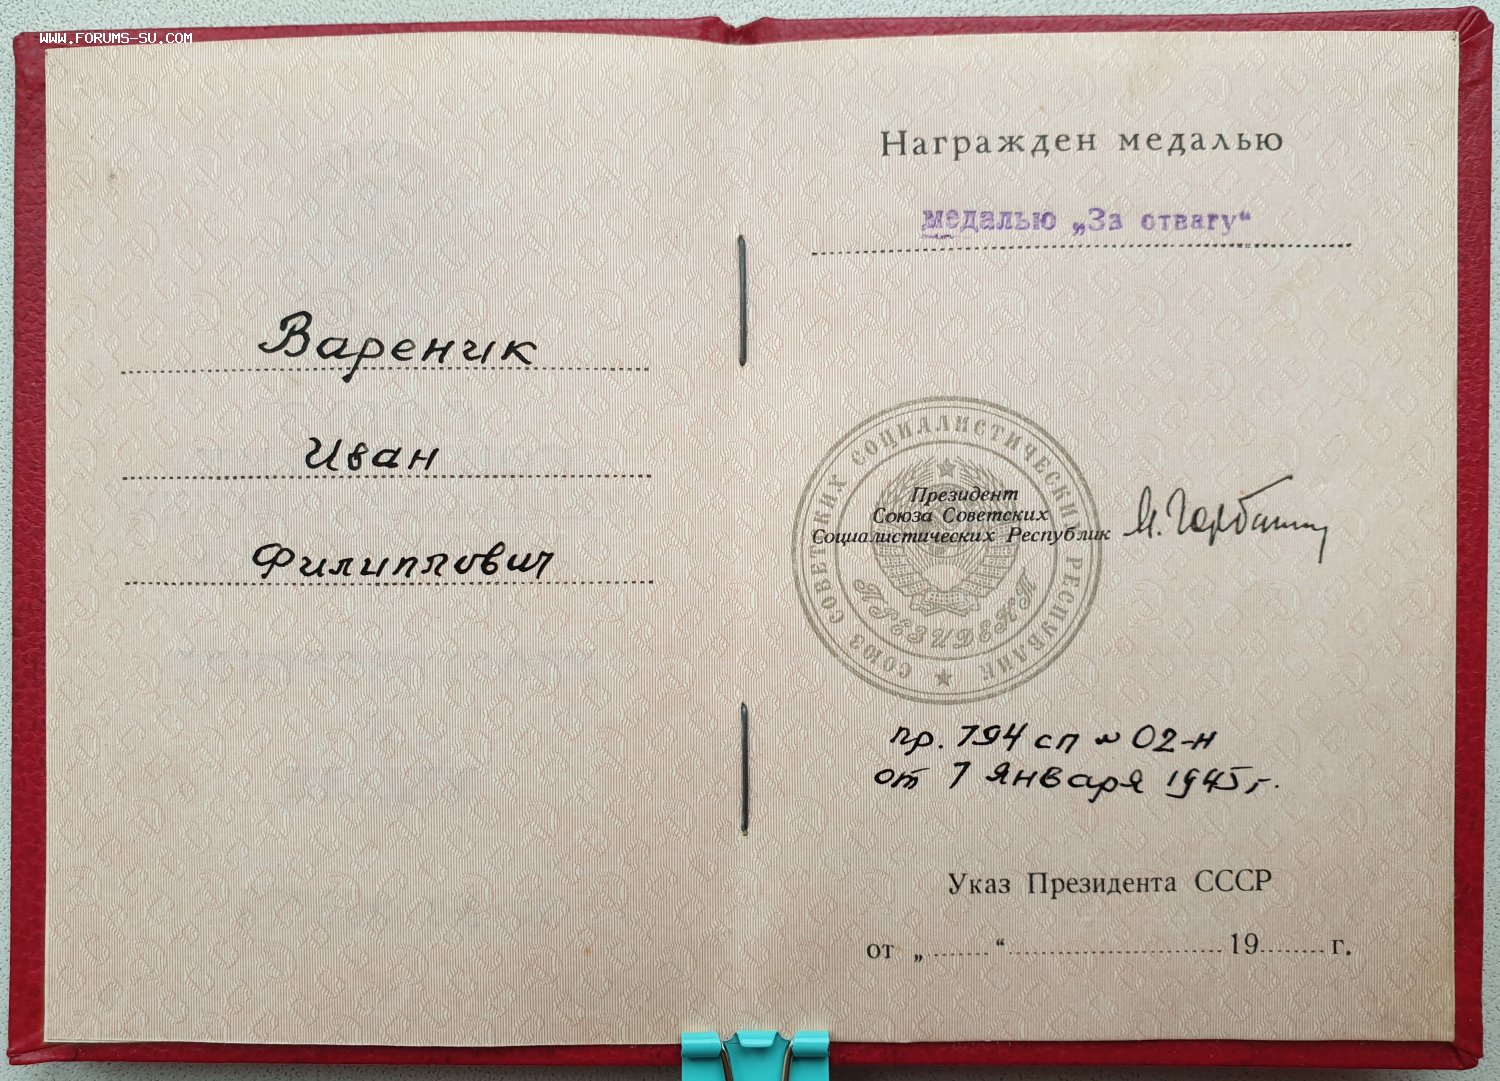 WWW.FORUMS-SU.COM
Вареник
Иван
Филиппович
Награжден медалью
медалью „За отвагу“
СОЮЗ СОВЕТСКИХ СОЦИАЛИСТИЧЕСКИХ РЕСПУБЛИК
ПРЕЗИДЕНТ
Президент
Союза Советских
Социалистических Республик
М. Горбачев
пр. 794 сп № 02-н
от 7 января 1945 г.
Указ Президента СССР
от „ “ 19 г.